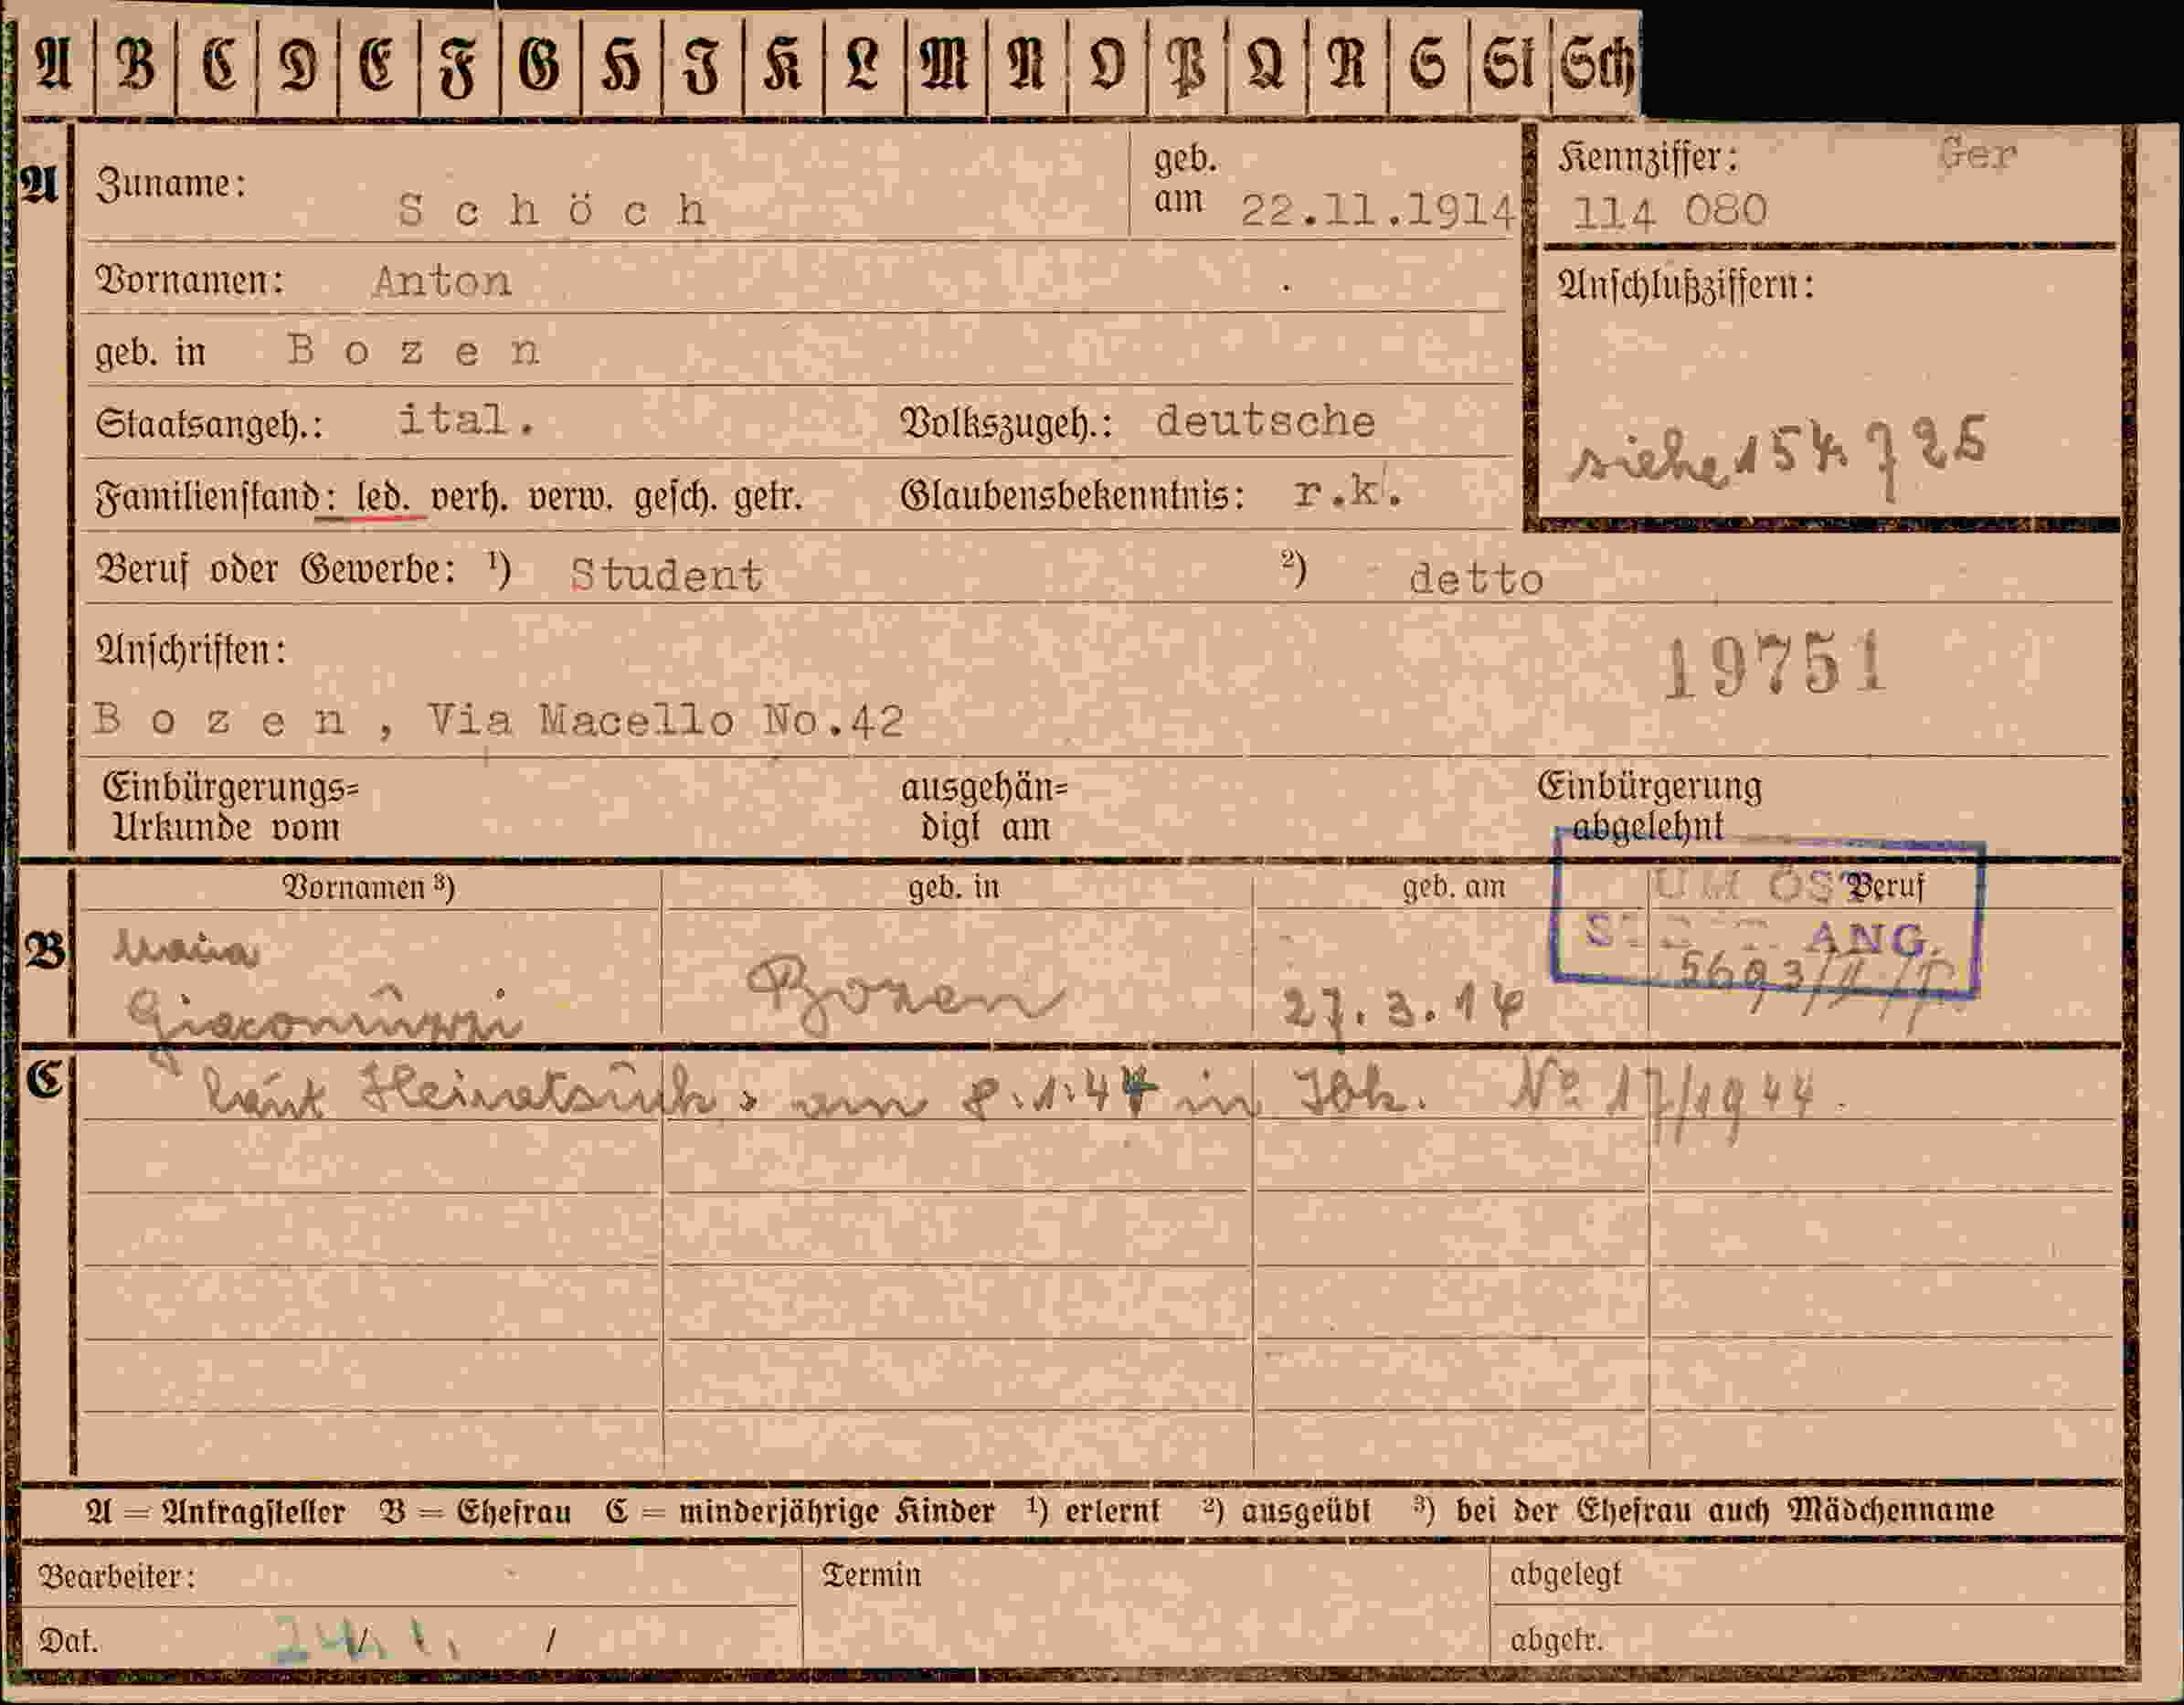 A B C D E F G H I K L M N O P Q R S St Sch
A
Zuname: Schöch geb. am 22.11.1914
Kennziffer: Ger
114 080
Vornamen: Anton
Anschlußziffern:
geb. in Bozen
Staatsangeh.: ital. Volkszugeh.: deutsche
siehe 154 725
Familienstand: led. verh. verw. gesch. getr. Glaubensbekenntnis: r.k.
Beruf oder Gewerbe: ¹) Student ²) detto
Anschriften:
19751
Bozen, Via Macello No.42
Einbürgerungs= ausgehän= Einbürgerung
Urkunde vom digt am abgelehnt
Vornamen ³) geb. in geb. am Beruf
UM ÖST
ANG.
B
Maria
Giacomuzzi Bozen 27.3.14
C
laut Heiratsurk. am 8.1.44 in Ibk. No 17/1944.
A = Antragsteller B = Ehefrau C = minderjährige Kinder ¹) erlernt ²) ausgeübt ³) bei der Ehefrau auch Mädchenname
Bearbeiter: Termin abgelegt
Dat. / abgetr.